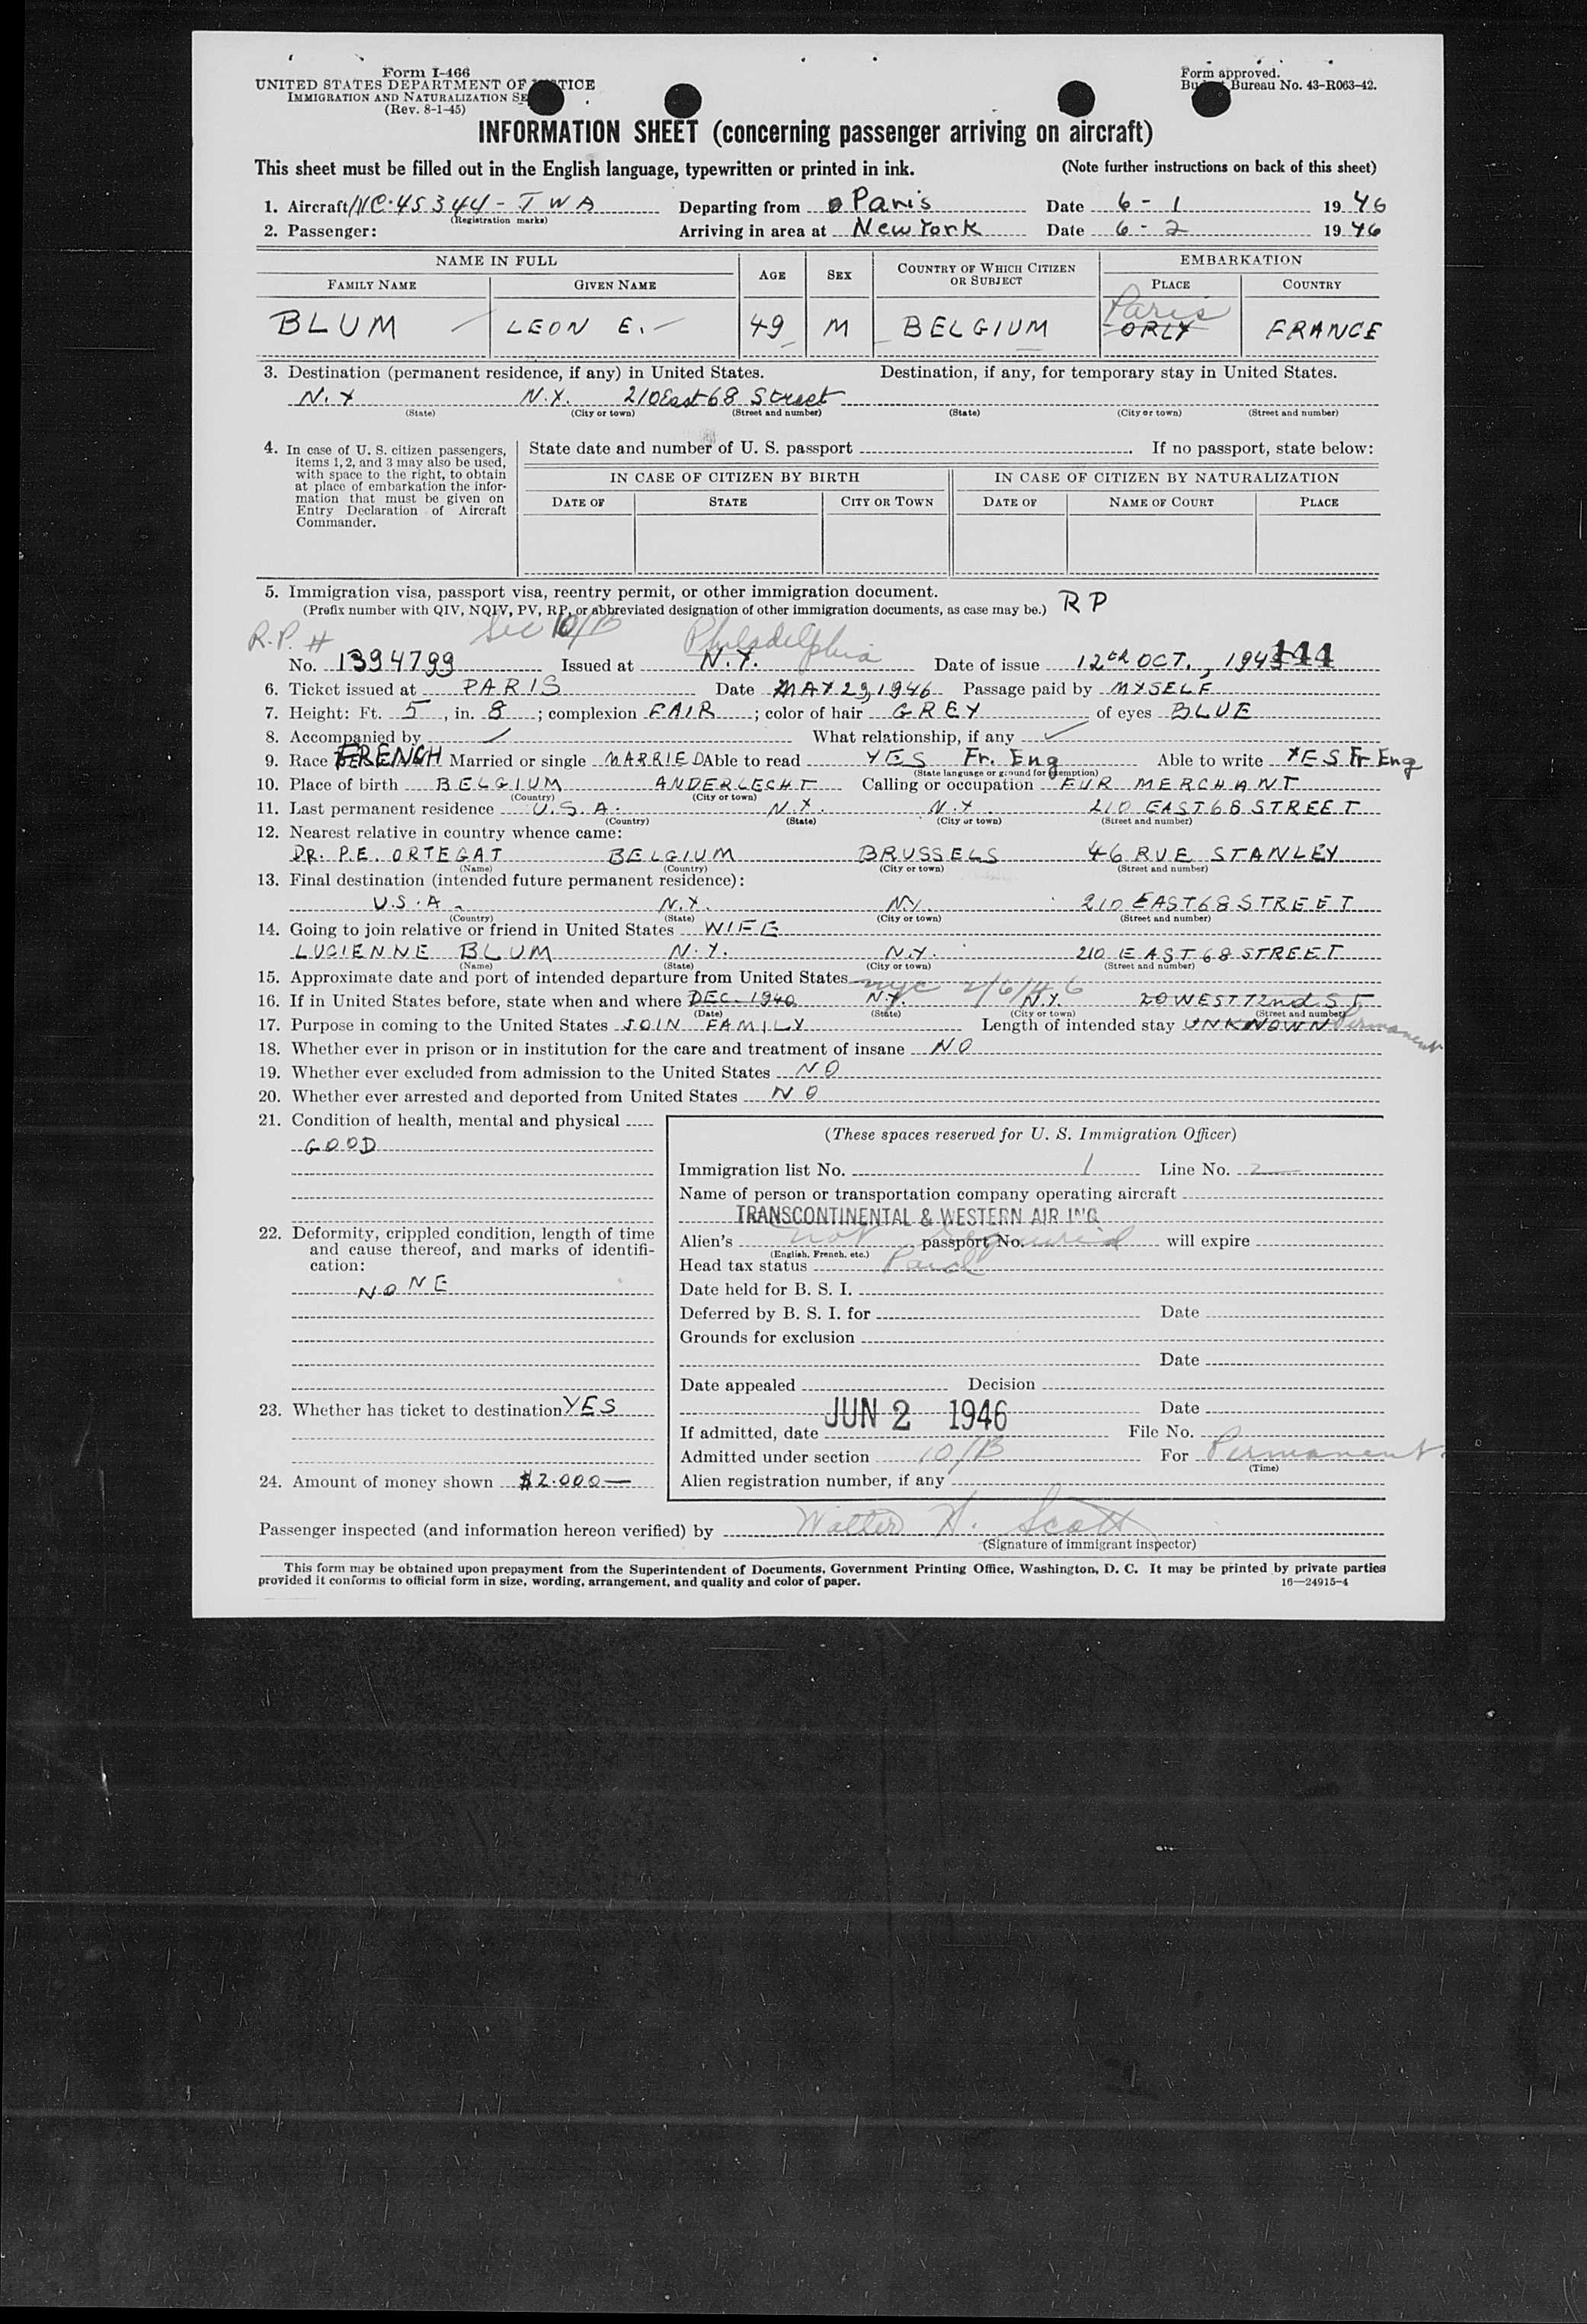 Form I-466
UNITED STATES DEPARTMENT OF JUSTICE
IMMIGRATION AND NATURALIZATION SE
(Rev. 8-1-45)
Form approved.
Budget Bureau No. 43-R063-42.
INFORMATION SHEET (concerning passenger arriving on aircraft)
This sheet must be filled out in the English language, typewritten or printed in ink. (Note further instructions on back of this sheet)
1. Aircraft NC-45344-TWA Departing from Paris Date 6-1 1946
(Registration marks)
2. Passenger: Arriving in area at New York Date 6-2 1946
NAME IN FULL AGE SEX COUNTRY OF WHICH CITIZEN OR SUBJECT EMBARKATION
FAMILY NAME GIVEN NAME PLACE COUNTRY
Paris
BLUM LEON E. 49 M BELGIUM ORLY FRANCE
3. Destination (permanent residence, if any) in United States. Destination, if any, for temporary stay in United States.
N.Y N.Y. 210 East 68 Street
(State) (City or town) (Street and number) (State) (City or town) (Street and number)
4. In case of U. S. citizen passengers, items 1, 2, and 3 may also be used, with space to the right, to obtain at place of embarkation the information that must be given on Entry Declaration of Aircraft Commander.
State date and number of U. S. passport . If no passport, state below:
IN CASE OF CITIZEN BY BIRTH IN CASE OF CITIZEN BY NATURALIZATION
DATE OF STATE CITY OR TOWN DATE OF NAME OF COURT PLACE
5. Immigration visa, passport visa, reentry permit, or other immigration document.
(Prefix number with QIV, NQIV, PV, RP, or abbreviated designation of other immigration documents, as case may be.) RP
R.P. # Sec 10/B Philadelphia
No. 1394799 Issued at N.Y. Date of issue 12 OCT., 194 144
6. Ticket issued at PARIS Date MAY 29, 1946 Passage paid by MYSELF
7. Height: Ft. 5, in. 8; complexion FAIR; color of hair GREY of eyes BLUE
8. Accompanied by / What relationship, if any ✓
9. Race FRENCH Married or single MARRIED Able to read YES Fr. Eng Able to write YES Fr Eng
(State language or ground for exemption)
10. Place of birth BELGIUM ANDERLECHT Calling or occupation FUR MERCHANT
(Country) (City or town)
11. Last permanent residence U.S.A. N.Y. N.Y. 210 EAST 68 STREET
(Country) (State) (City or town) (Street and number)
12. Nearest relative in country whence came:
DR. P.E. ORTEGAT BELGIUM BRUSSELS 46 RUE STANLEY
(Name) (Country) (City or town) (Street and number)
13. Final destination (intended future permanent residence):
U.S.A. N.Y. N.Y. 210 EAST 68 STREET
(Country) (State) (City or town) (Street and number)
14. Going to join relative or friend in United States WIFE
LUCIENNE BLUM N.Y. N.Y. 210 EAST 68 STREET
(Name) (State) (City or town) (Street and number)
15. Approximate date and port of intended departure from United States nyc 2/6/46
16. If in United States before, state when and where DEC. 1940 N.Y. N.Y. 20 WEST 72nd ST
(Date) (State) (City or town) (Street and number)
17. Purpose in coming to the United States JOIN FAMILY Length of intended stay UNKNOWN Permanent
18. Whether ever in prison or in institution for the care and treatment of insane NO
19. Whether ever excluded from admission to the United States NO
20. Whether ever arrested and deported from United States NO
21. Condition of health, mental and physical
GOOD
22. Deformity, crippled condition, length of time and cause thereof, and marks of identification:
NONE
23. Whether has ticket to destination YES
24. Amount of money shown $2.000—
(These spaces reserved for U. S. Immigration Officer)
Immigration list No. 1 Line No. 2
Name of person or transportation company operating aircraft
TRANSCONTINENTAL & WESTERN AIR INC
Alien's not passport No. required will expire
(English, French, etc.)
Head tax status Paid
Date held for B. S. I.
Deferred by B. S. I. for Date
Grounds for exclusion
Date
Date appealed Decision
Date
If admitted, date JUN 2 1946 File No.
Admitted under section 10/B For Permanent
(Time)
Alien registration number, if any
Passenger inspected (and information hereon verified) by Walter H. Scott
(Signature of immigrant inspector)
This form may be obtained upon prepayment from the Superintendent of Documents, Government Printing Office, Washington, D. C. It may be printed by private parties
provided it conforms to official form in size, wording, arrangement, and quality and color of paper. 16—24915-4